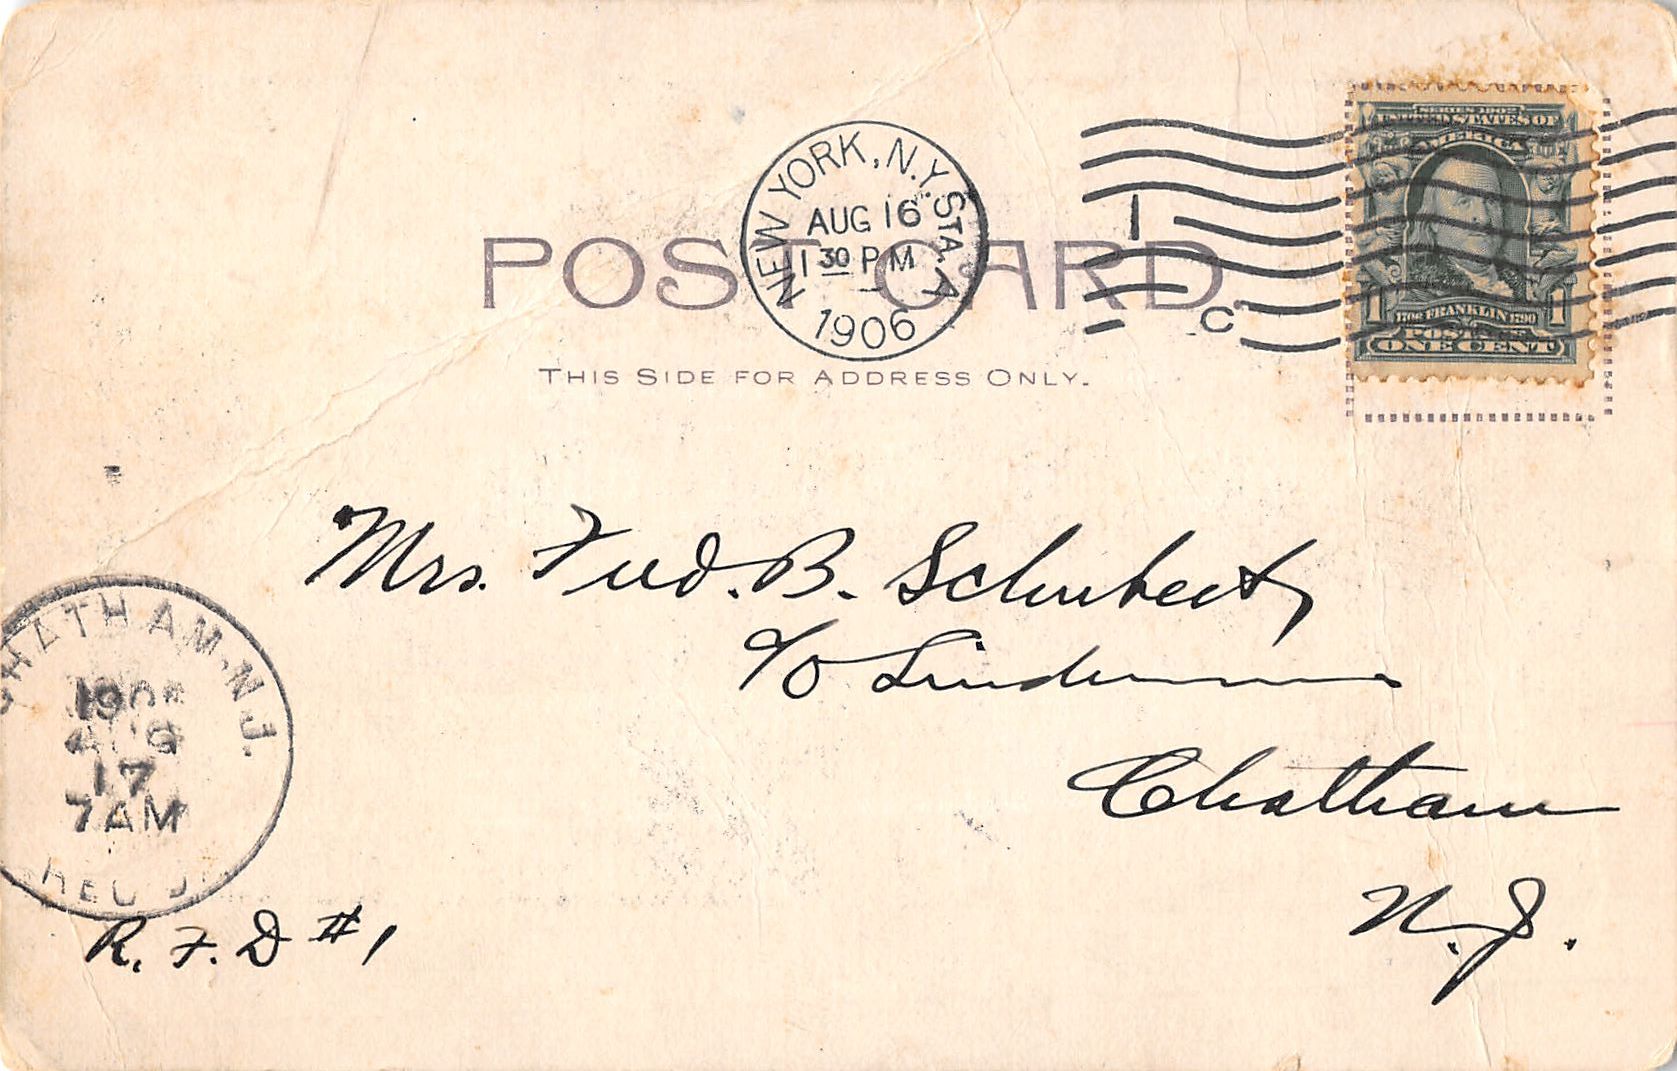 POST CARD
THIS SIDE FOR ADDRESS ONLY.
NEW YORK, N.Y. STA. A
AUG 16
1 30 P M
1906
1
C
SERIES 1902
UNITED STATES OF
AMERICA
1 1
1706 FRANKLIN 1790
POSTAGE
ONE CENT
Mrs. Fred. B. Schubert,
c/o Lindemann
Chatham
N. J.
CHATHAM, N.J.
1906
AUG
17
7 AM
REC'D.
R. F. D #1